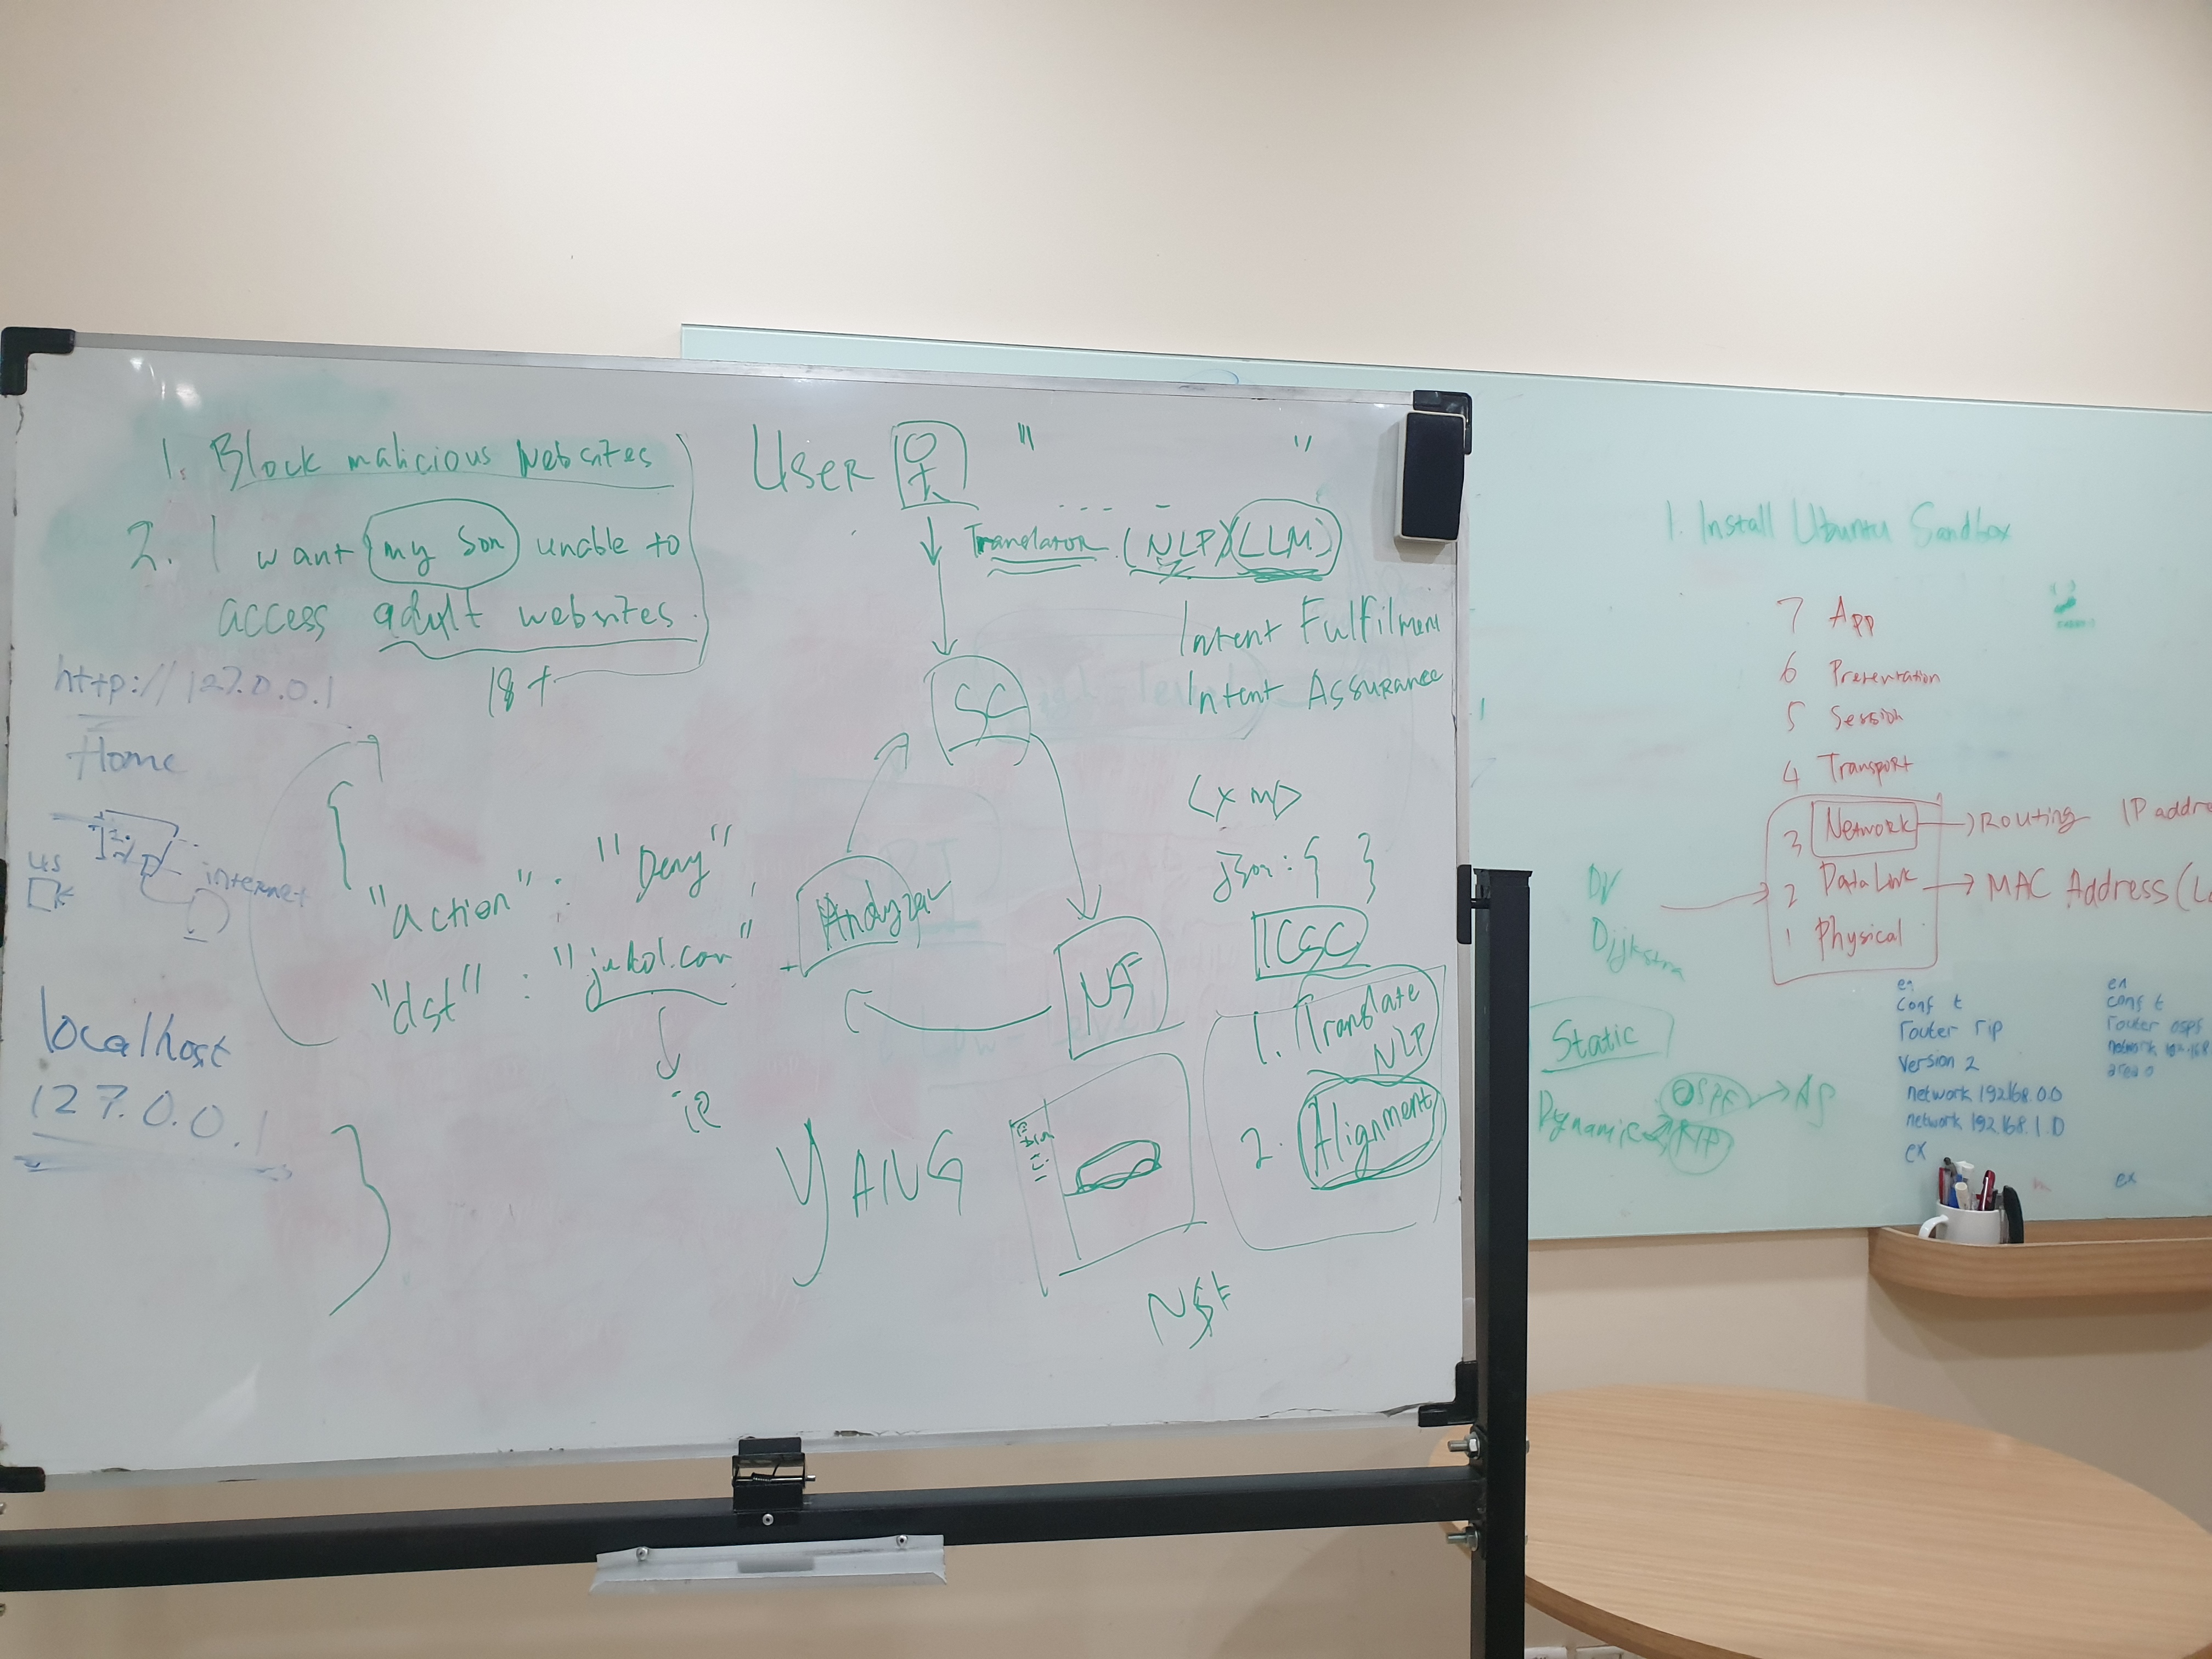 1. Block malicious websites
2. I want my son unable to
access adult websites.
18+
http://127.0.0.1
Home
us
internet
localhost
127.0.0.1
{
"action" : "Deny" ,
"dst" : "
"
}
User
" "
...
Translator (NLP) (LLM)
Intent Fulfilment
Intent Assurance
SC
Analyzer
NSF
<xml>
json : { }
ICSC
1. Translate
NLP
2. Alignment
YANG
NSF
1. Install Ubuntu Sandbox
7 App
6 Presentation
5 Session
4 Transport
3 Network → Routing IP addre
2 Data Link → MAC Address (L
1 Physical
DV
Dijkstra
Static
Dynamic
OSPF → AS
RIP
en
conf t
router rip
version 2
network 192.168.0.0
network 192.168.1.0
ex
en
conf t
router ospf
network 192.168
area 0
ex